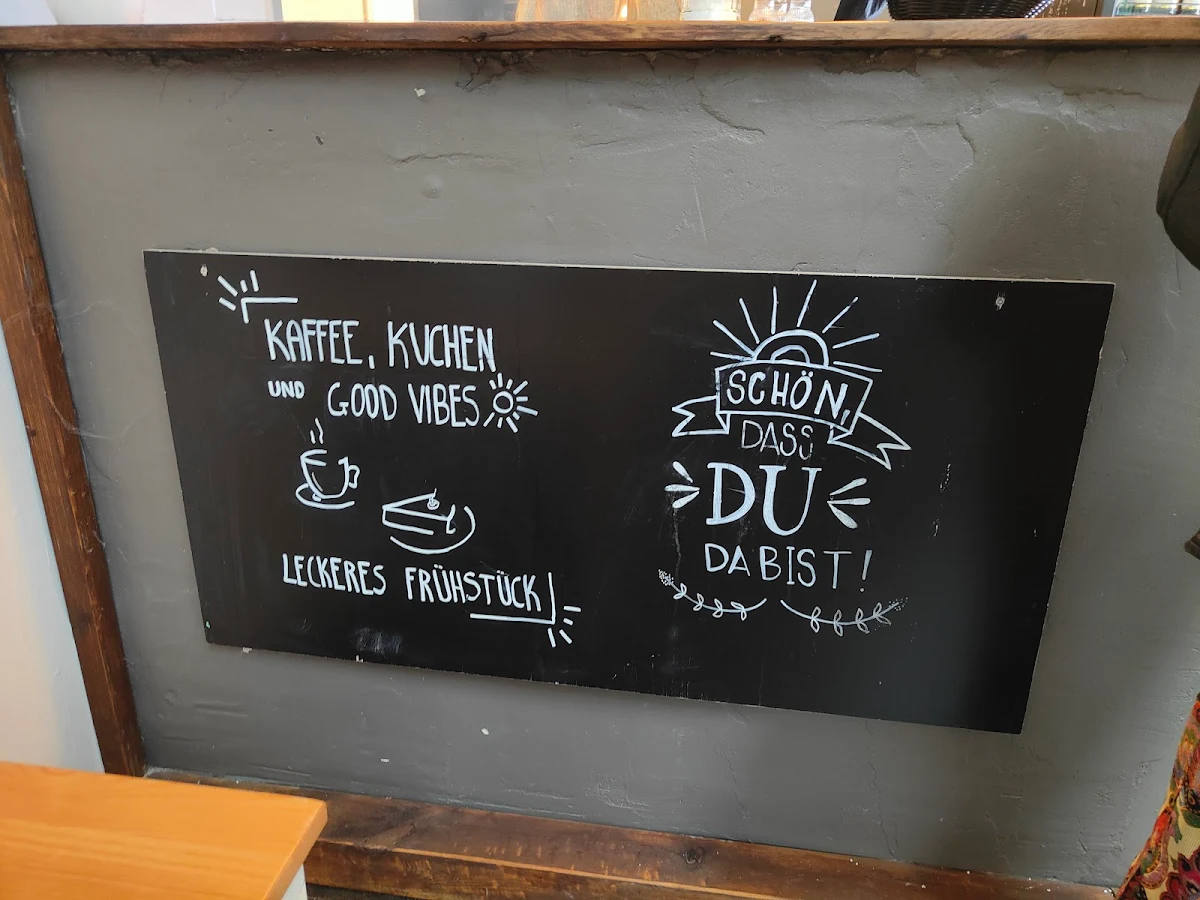 KAFFEE, KUCHEN
UND GOOD VIBES
LECKERES FRÜHSTÜCK
SCHÖN,
DASS
DU
DA BIST!